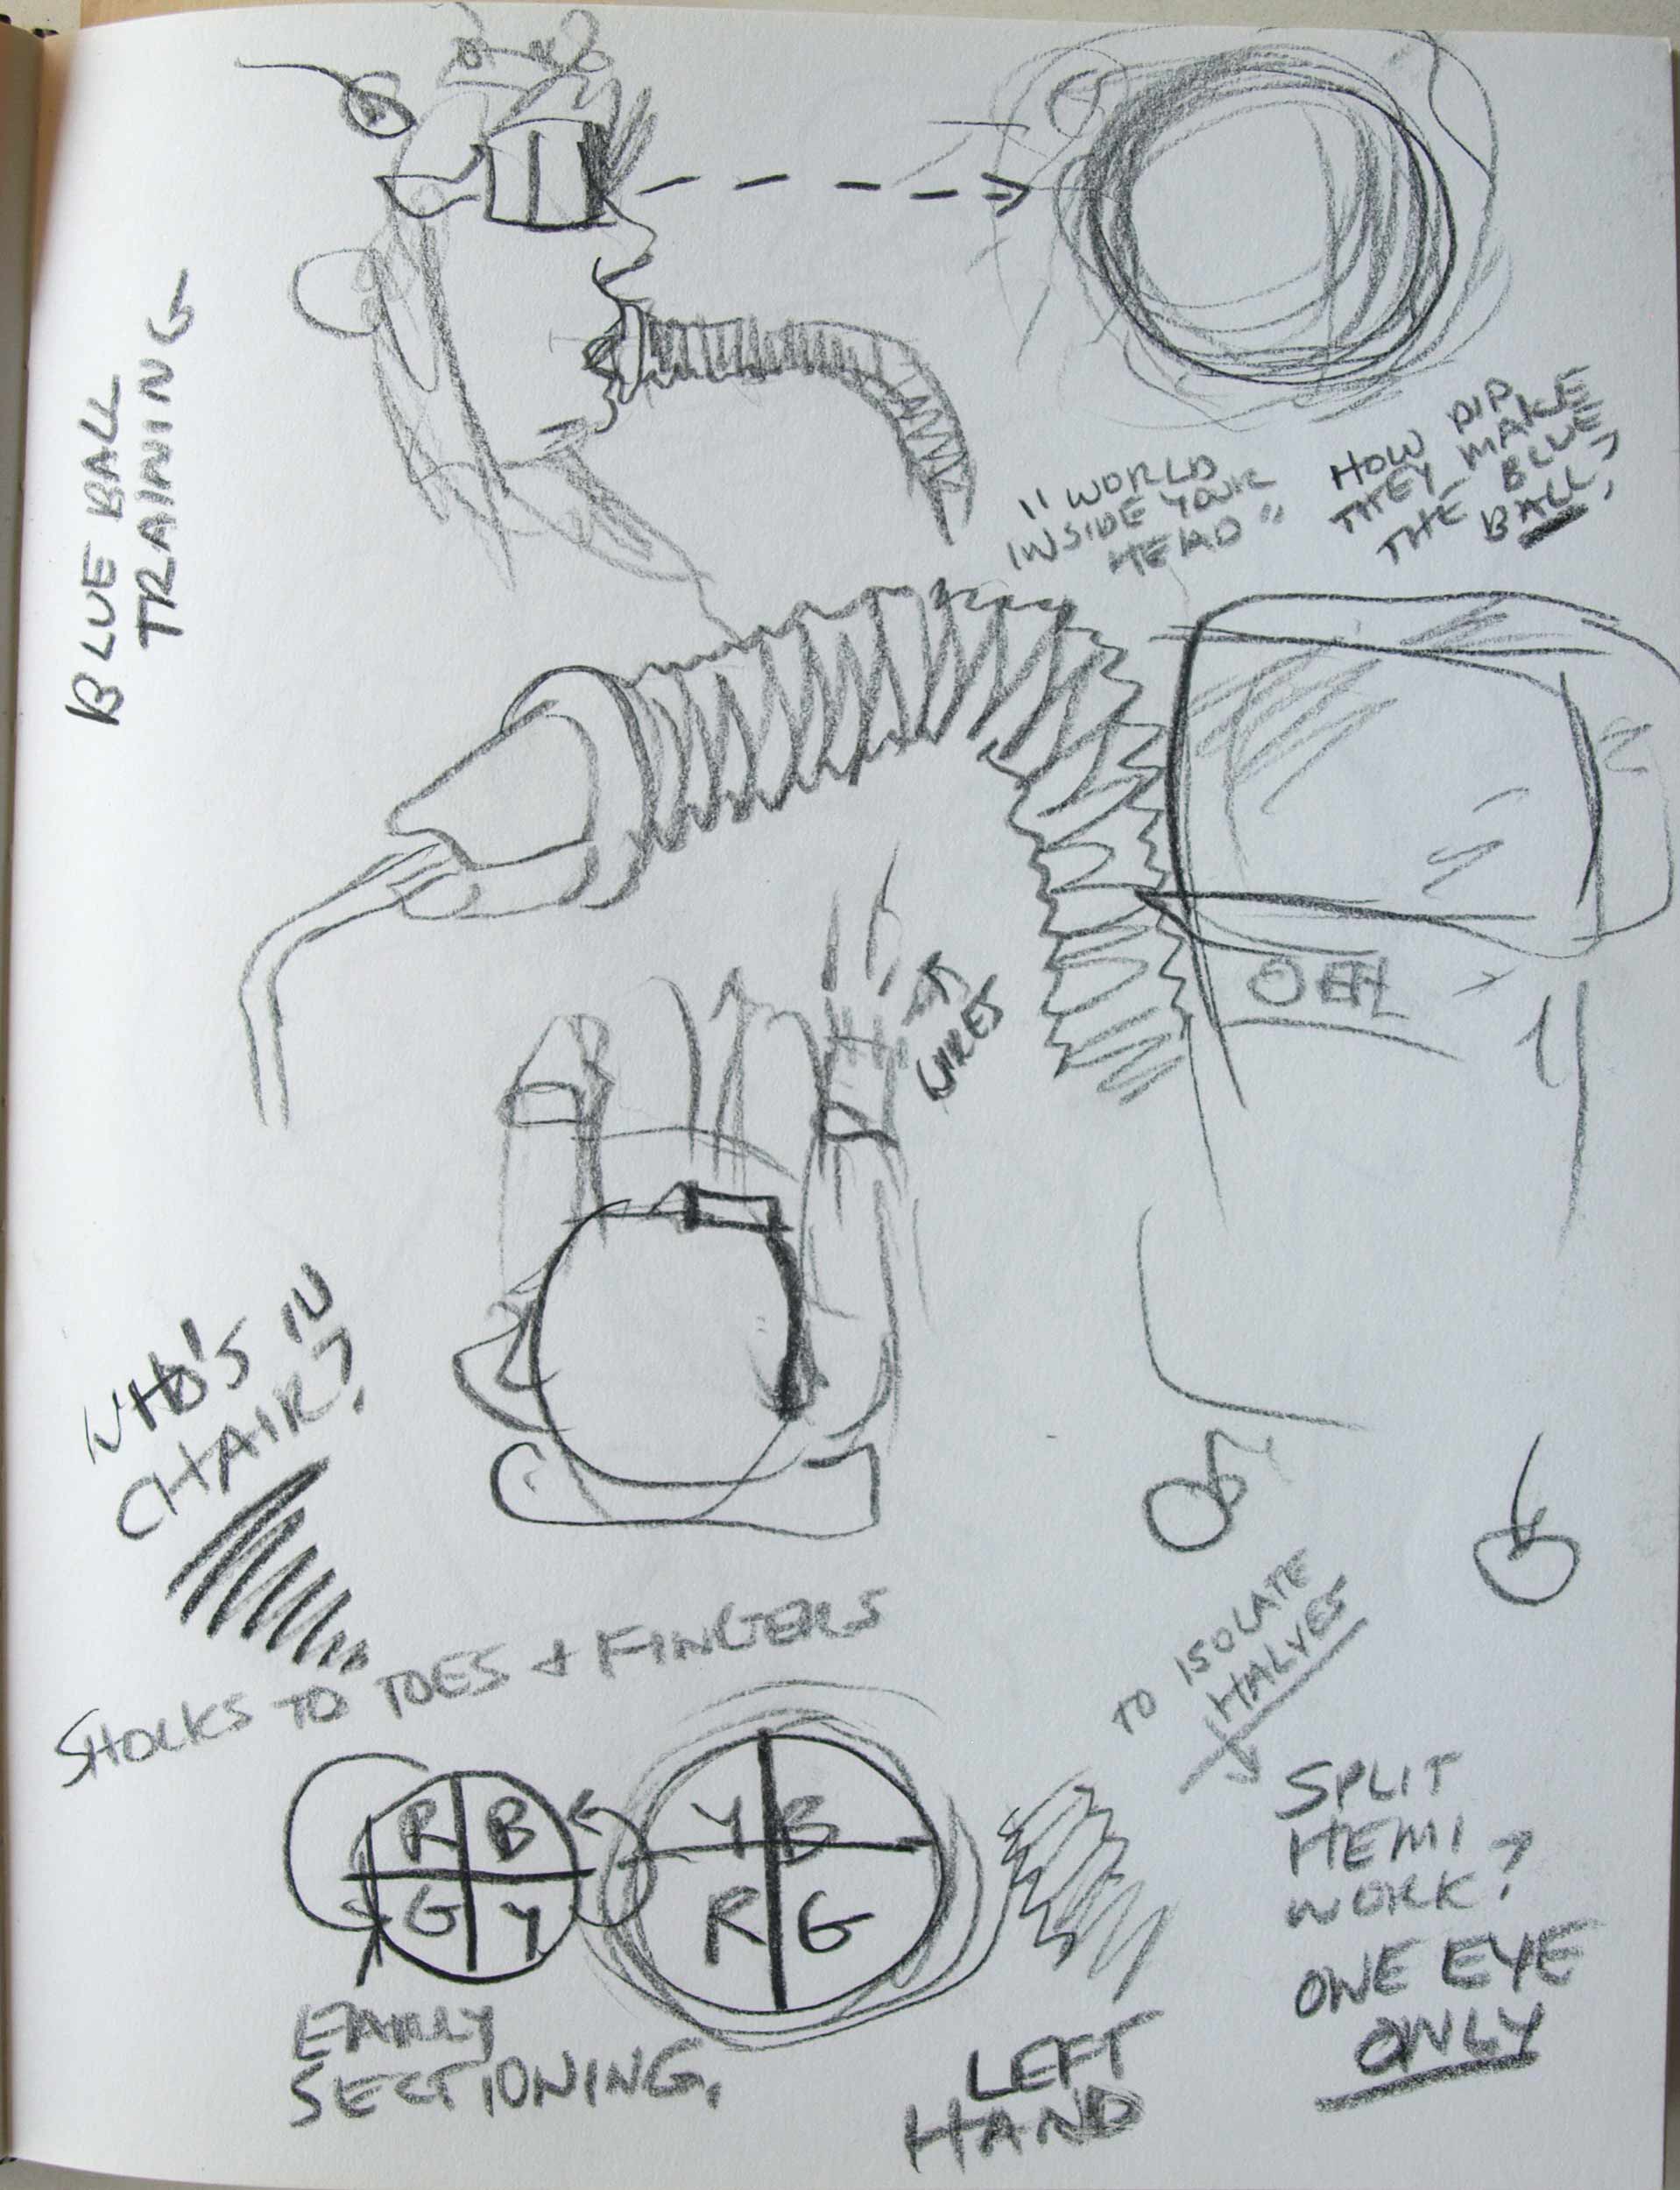 BLUE BALL
TRAINING
"WORLD
INSIDE YOUR
HEAD"
HOW DID
THEY MAKE
THE BLUE
BALL?
WIRES
WHO'S IN
CHAIR?
SHOCKS TO TOES + FINGERS
TO ISOLATE
HALVES
R B
G Y
Y B
R G
SPLIT
HEMI
WORK?
ONE EYE
ONLY
EARLY
SECTIONING,
LEFT
HAND